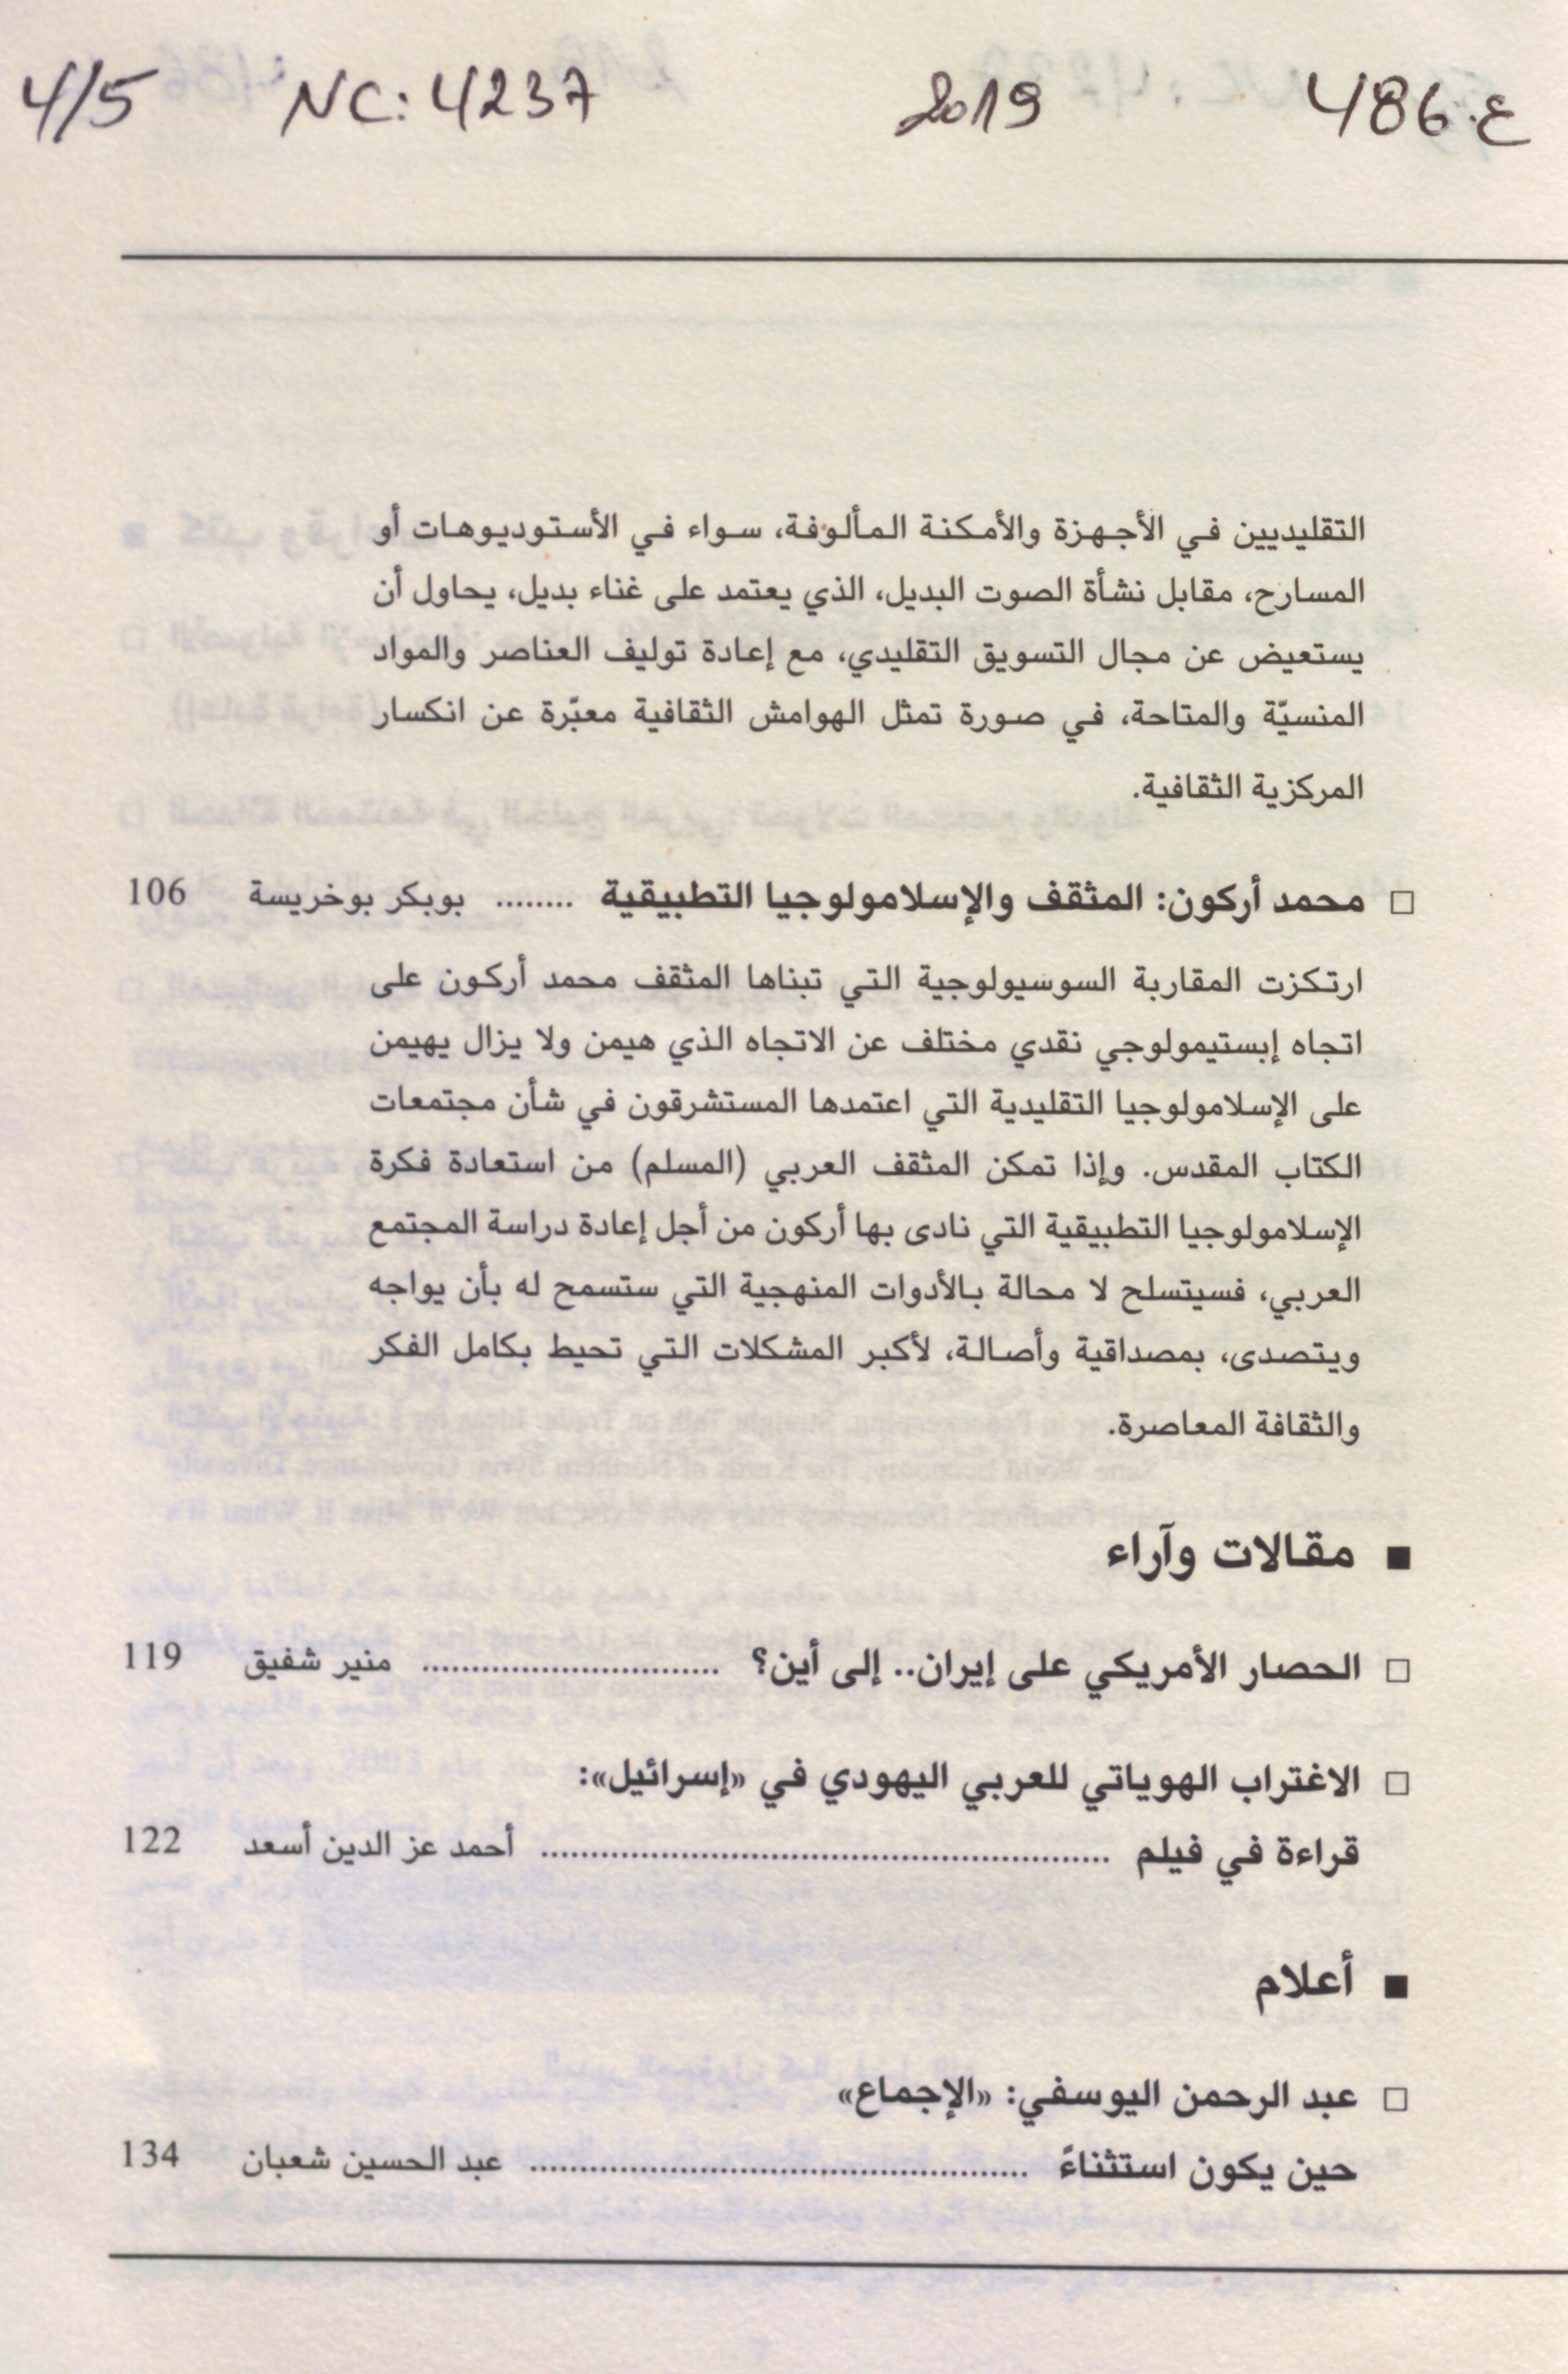 4/5 NC: 4237 2019 ع.486
التقليديين في الأجهزة والأمكنة المألوفة، سواء في الأستوديوهات أو
المسارح، مقابل نشأة الصوت البديل، الذي يعتمد على غناء بديل، يحاول أن
يستعيض عن مجال التسويق التقليدي، مع إعادة توليف العناصر والمواد
المنسيّة والمتاحة، في صورة تمثل الهوامش الثقافية معبّرة عن انكسار
المركزية الثقافية.
□ محمد أركون: المثقف والإسلامولوجيا التطبيقية ........ بوبكر بوخريسة 106
ارتكزت المقاربة السوسيولوجية التي تبناها المثقف محمد أركون على
اتجاه إبستيمولوجي نقدي مختلف عن الاتجاه الذي هيمن ولا يزال يهيمن
على الإسلامولوجيا التقليدية التي اعتمدها المستشرقون في شأن مجتمعات
الكتاب المقدس. وإذا تمكن المثقف العربي (المسلم) من استعادة فكرة
الإسلامولوجيا التطبيقية التي نادى بها أركون من أجل إعادة دراسة المجتمع
العربي، فسيتسلح لا محالة بالأدوات المنهجية التي ستسمح له بأن يواجه
ويتصدى، بمصداقية وأصالة، لأكبر المشكلات التي تحيط بكامل الفكر
والثقافة المعاصرة.
■ مقالات وآراء
□ الحصار الأمريكي على إيران.. إلى أين؟ .............................. منير شفيق 119
□ الاغتراب الهوياتي للعربي اليهودي في «إسرائيل»:
قراءة في فيلم ......................................................... أحمد عز الدين أسعد 122
■ أعلام
□ عبد الرحمن اليوسفي: «الإجماع»
حين يكون استثناءً .................................................. عبد الحسين شعبان 134